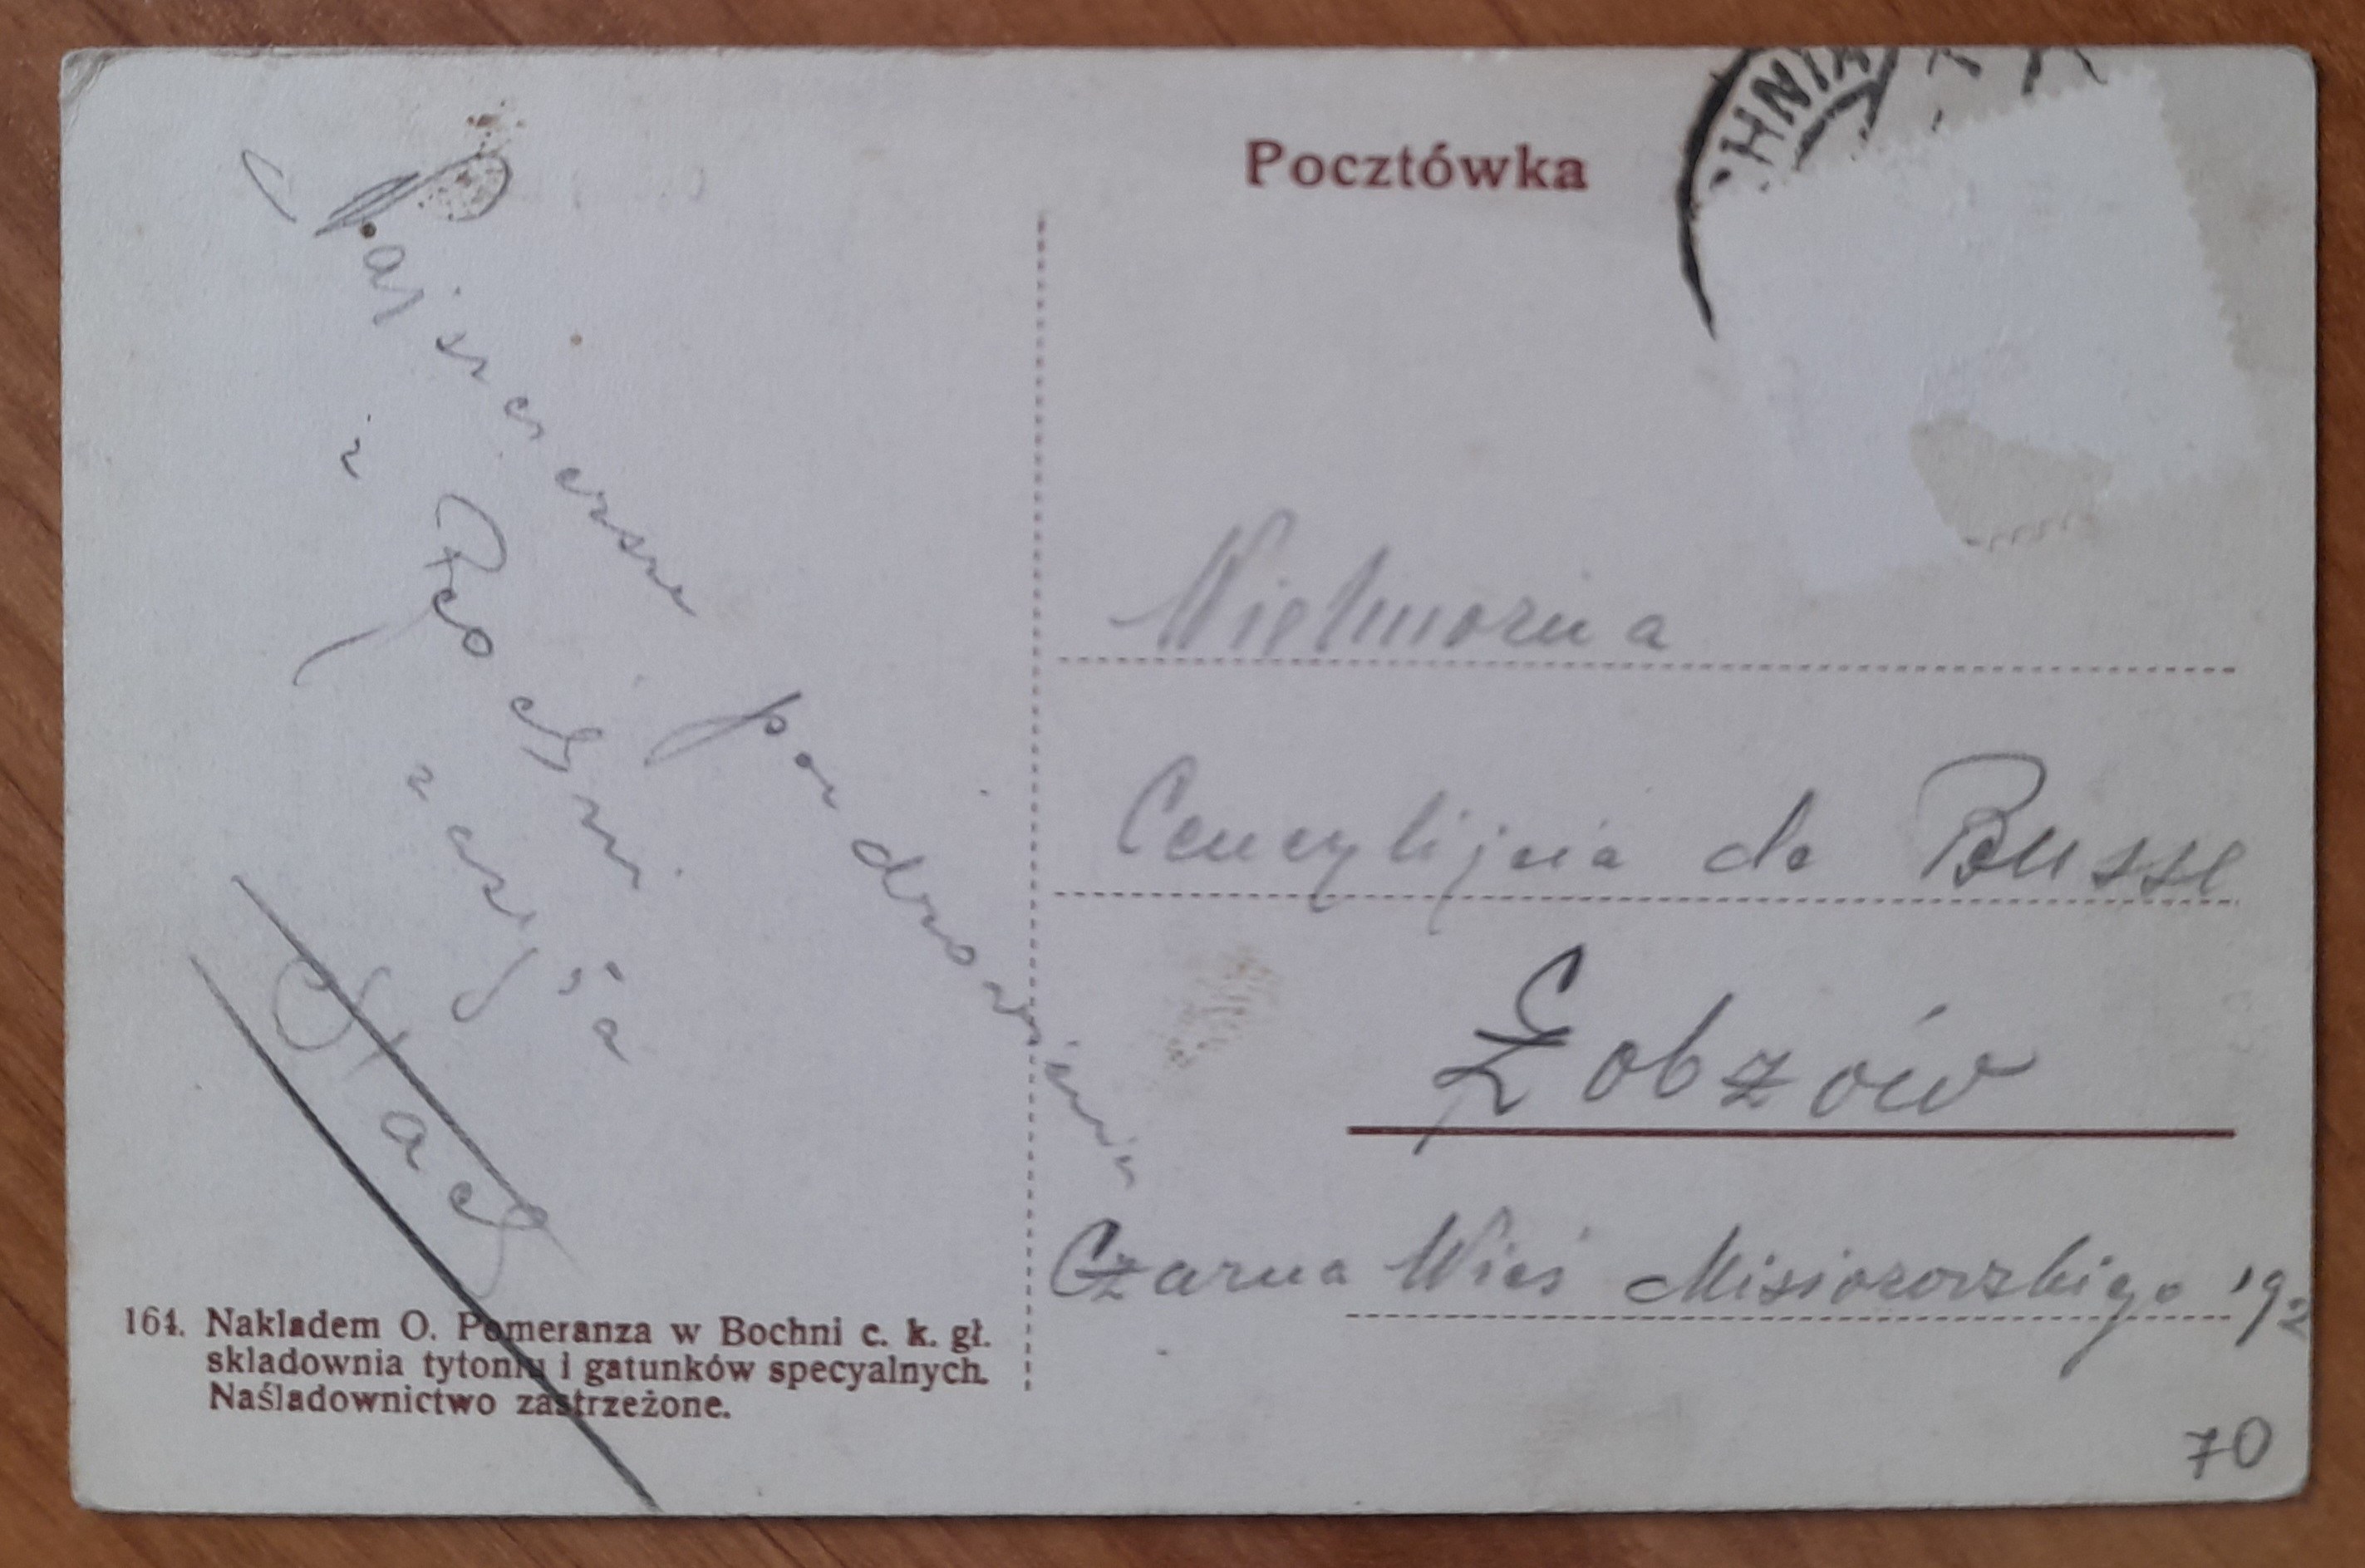 Pocztówka
HNIA
Najszczersze pozdrowienia
z Bochni
zasyła
Stach
Wielmożna
de Busse
Łobzów
Czarna Wieś Misiorowskiego 192
70
164. Nakładem O. Pomeranza w Bochni c. k. gł.
składownia tytoniu i gatunków specyalnych.
Naśladownictwo zastrzeżone.